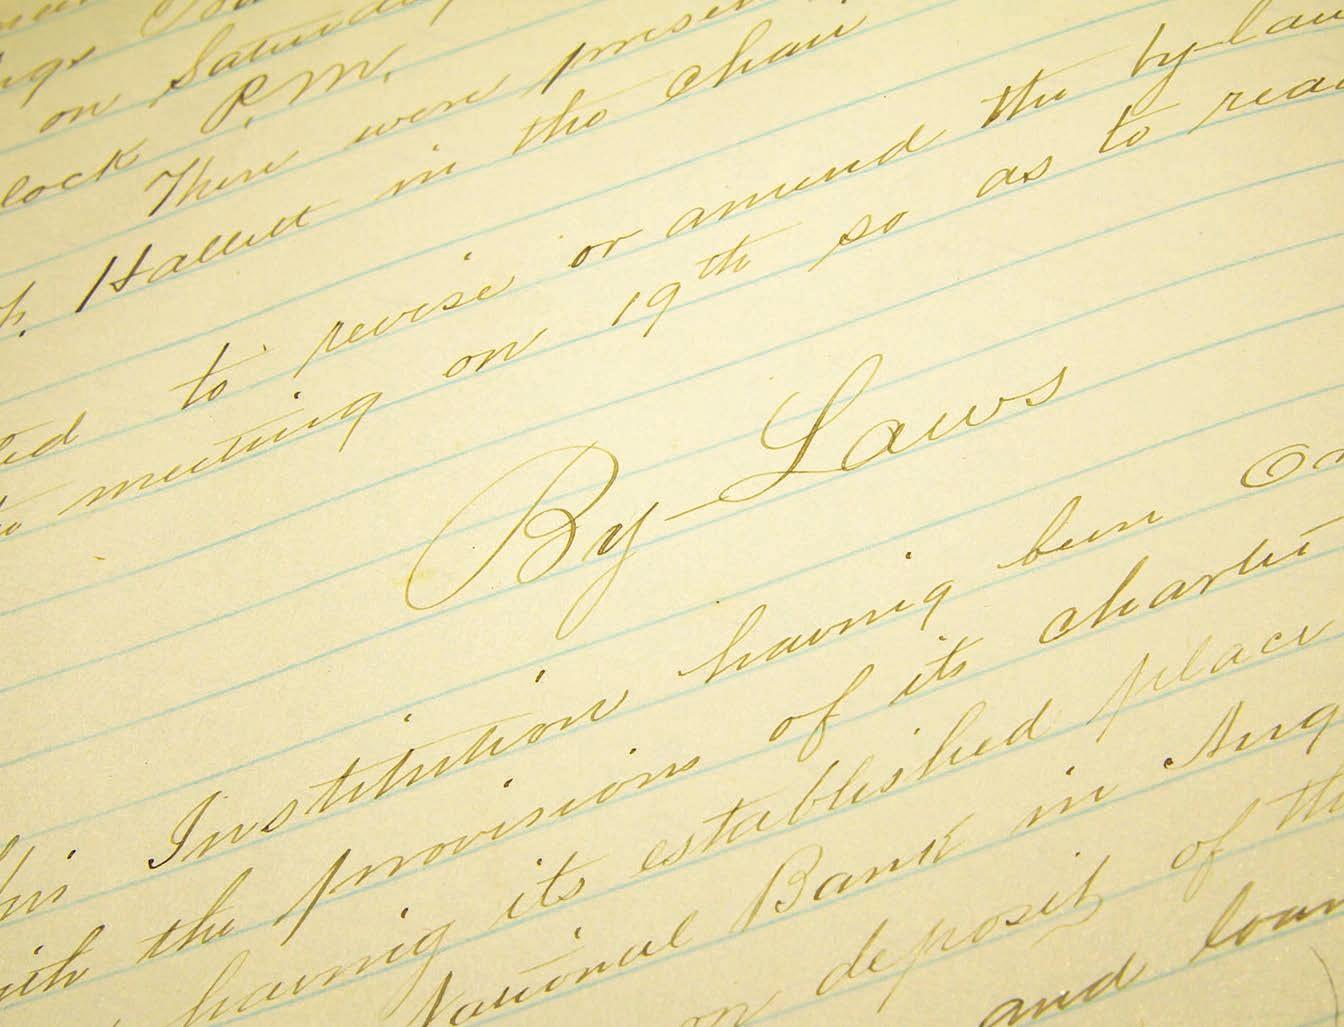 on Saturday
lock P.M.
There were present
Hallett in the chair
to revise or amend the by-laws
meeting on 19th so as to read
By-Laws
Institution having been
with the provisions of its charter
having its established place
National Bank in Aug
on deposit of the
and loan